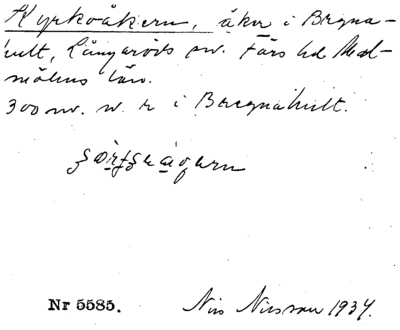 Kyrkoåkern, åker i Bregna-
hult, Långaröds sn. Färs hd Mal-
möhus län.
300 m. v. r i Bregnahult.
Nr 5585. Nils Nilsson 1934.